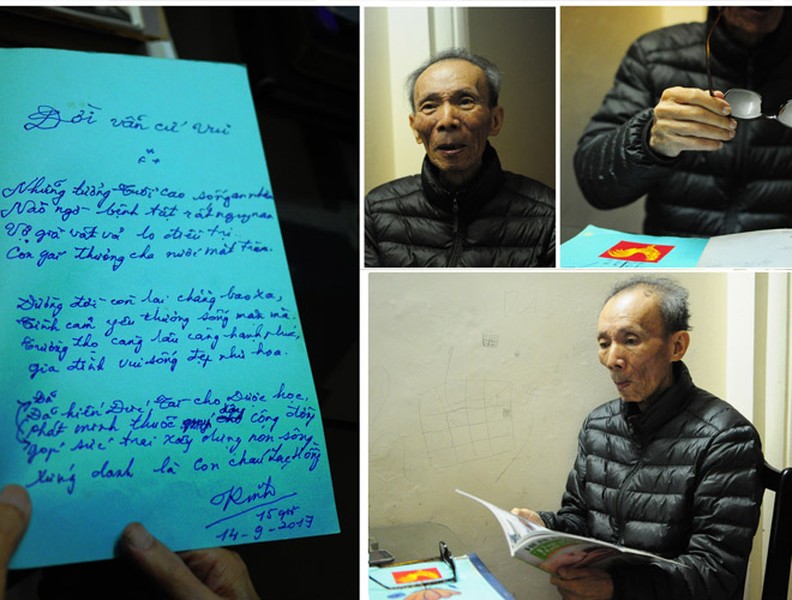 Đời vẫn cứ vui
Những tưởng tuổi cao sống an nhàn
Nào ngờ bệnh tật rất nguy nan
Vợ già vất vả lo điều trị.
Con gái thương cha nuốt mắt tràn.
Đường đời còn lại chẳng bao xa,
Tình cảm yêu thương sống mặn mà.
Trường thọ càng lâu càng hạnh phúc,
Gia đình vui sống đẹp như hoa.
Đã
Đã hiến Đức, Tài cho Dược học,
Phát minh thuốc quý cộng đồng
Góp sức trai xây dựng non sông
Xứng danh là con cháu Lạc Hồng
15 giờ
14-9-2017